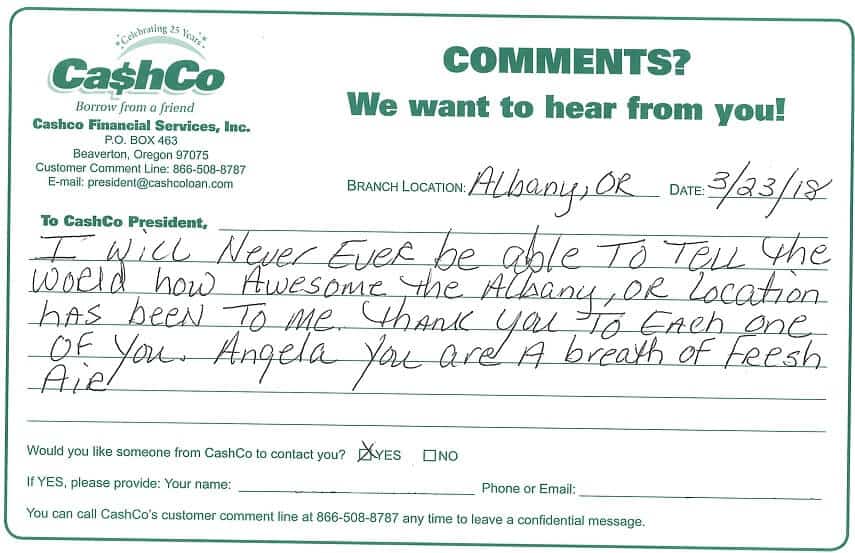 Celebrating 25 Years
Ca$hCo
Borrow from a friend
Cashco Financial Services, Inc.
P.O. BOX 463
Beaverton, Oregon 97075
Customer Comment Line: 866-508-8787
E-mail: president@cashcoloan.com
COMMENTS?
We want to hear from you!
BRANCH LOCATION: Albany, OR DATE: 3/23/18
To CashCo President,
I WILL NEVER EVER be able TO TELL the
WORLD how AWESOME the Albany, OR Location
HAS been TO ME. THANK you TO EACH one
OF You. Angela you are A breath OF FRESH
AIR
Would you like someone from CashCo to contact you? ☒YES ☐NO
If YES, please provide: Your name: Phone or Email:
You can call CashCo's customer comment line at 866-508-8787 any time to leave a confidential message.